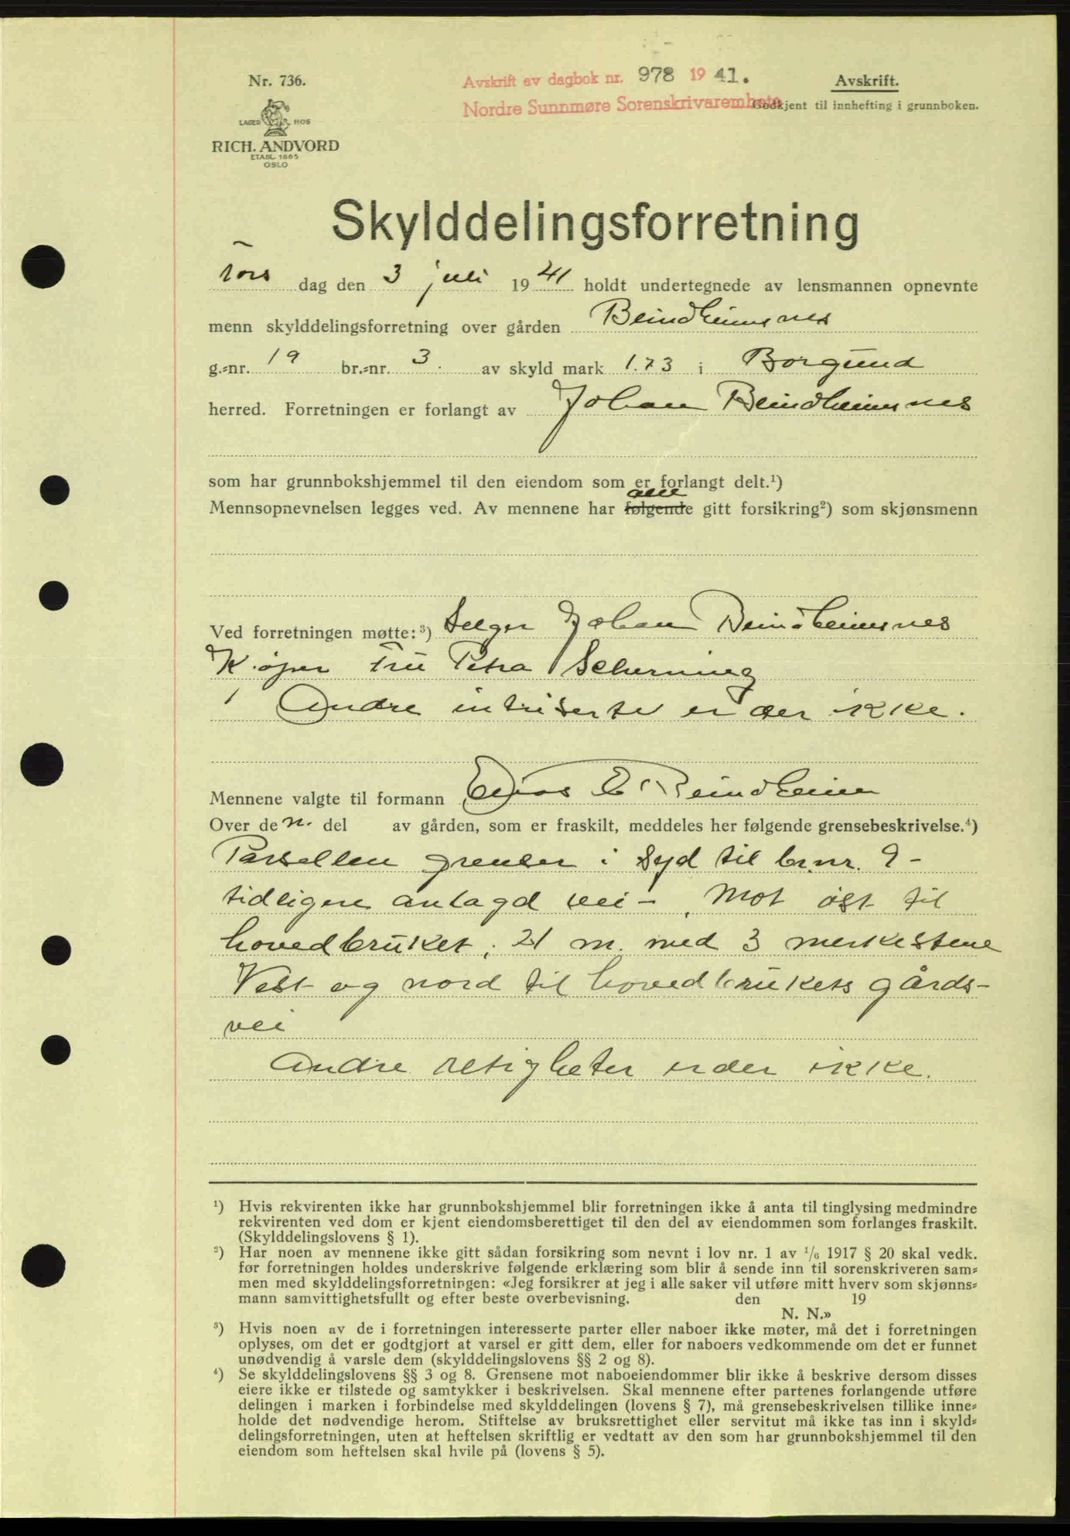 Nr. 736.
LAGER HOS
RICH. ANDVORD
ETABL. 1865
OSLO
Avskrift av dagbok nr. 978 1941.
Nordre Sunnmøre Sorenskriverembete
Avskrift.
Godkjent til innhefting i grunnboken.
Skylddelingsforretning
Tors dag den 3 juli 1941 holdt undertegnede av lensmannen opnevnte
menn skylddelingsforretning over gården Beindheimsnes
g.=nr. 19 br.=nr. 3. av skyld mark 1.73 i Borgund
herred. Forretningen er forlangt av Johan Beindheimsnes
som har grunnbokshjemmel til den eiendom som er forlangt delt.¹)
alle
Mennsopnevnelsen legges ved. Av mennene har følgende gitt forsikring²) som skjønsmenn
Ved forretningen møtte:³) Selger Johan Beindheimsnes
Kjøper Fru Petra Scherning
Andre intriserte er der ikke.
Mennene valgte til formann E Beindheim
Over den. del av gården, som er fraskilt, meddeles her følgende grensebeskrivelse.⁴)
Parsellen grenser i Syd til br.nr. 9 -
tidligere anlagd vei - , Mot øst til
hovedbruket, 21 m. med 3 merkestene
Vest og nord til hovedbrukets gårds-
vei
Andre retigheter er der ikke.
¹) Hvis rekvirenten ikke har grunnbokshjemmel blir forretningen ikke å anta til tinglysing medmindre
rekvirenten ved dom er kjent eiendomsberettiget til den del av eiendommen som forlanges fraskilt.
(Skylddelingslovens § 1).
²) Har noen av mennene ikke gitt sådan forsikring som nevnt i lov nr. 1 av ¹/₆ 1917 § 20 skal vedk.
før forretningen holdes underskrive følgende erklæring som blir å sende inn til sorenskriveren sam=
men med skylddelingsforretningen: «Jeg forsikrer at jeg i alle saker vil utføre mitt hverv som skjønns=
mann samvittighetsfullt og efter beste overbevisning. den 19
N. N.»
³) Hvis noen av de i forretningen interesserte parter eller naboer ikke møter, må det i forretningen
oplyses, om det er godtgjort at varsel er gitt dem, eller for naboers vedkommende om det er funnet
unødvendig å varsle dem (skylddelingslovens §§ 2 og 8).
⁴) Se skylddelingslovens §§ 3 og 8. Grensene mot naboeiendommer blir ikke å beskrive dersom disses
eiere ikke er tilstede og samtykker i beskrivelsen. Skal mennene efter partenes forlangende utføre
delingen i marken i forbindelse med skylddelingen (lovens § 7), må grensebeskrivelsen tillike inne=
holde det nødvendige herom. Stiftelse av bruksrettighet eller servitut må ikke tas inn i skyld=
delingsforretningen, uten at heftelsen skriftlig er vedtatt av den som har grunnbokshjemmel til den
eiendom som heftelsen skal hvile på (lovens § 5).